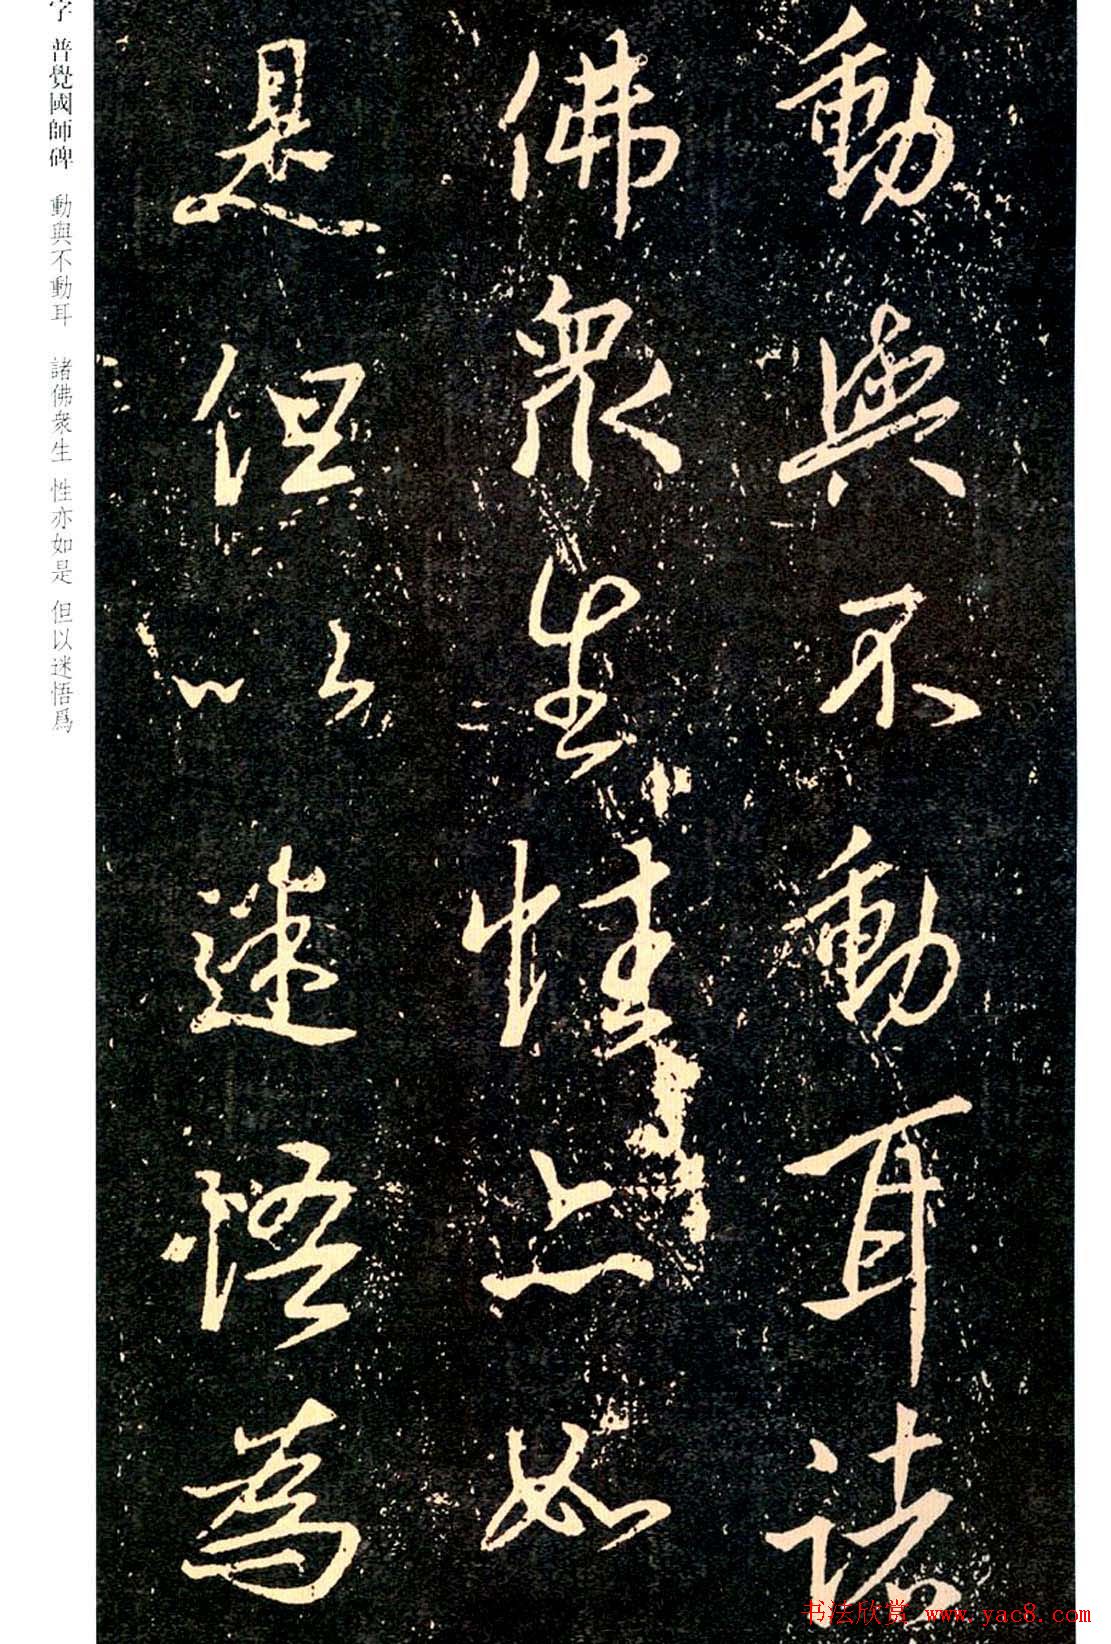 動與不動耳諸
佛衆生性亦如
是但以迷悟為
字 普覺國師碑 動與不動耳 諸佛衆生 性亦如是 但以迷悟爲
书法欣赏 www.yac8.com